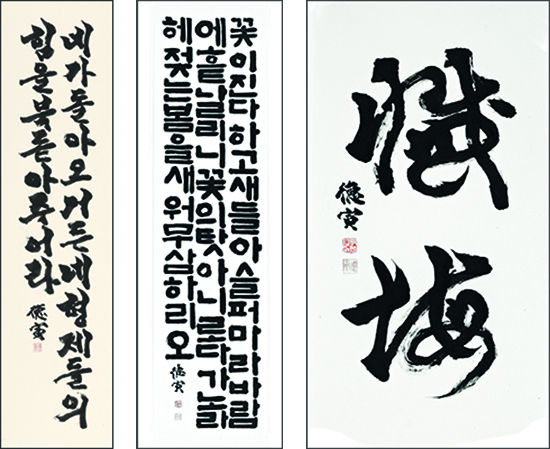 네가돌아오거든네형제들의
힘을북돋아주어라
꽃이진다하고새들아슬퍼마라바람
에흩날리니꽃의탓아니로다가노라
헤젖는봄을새워무삼하리오
懺悔